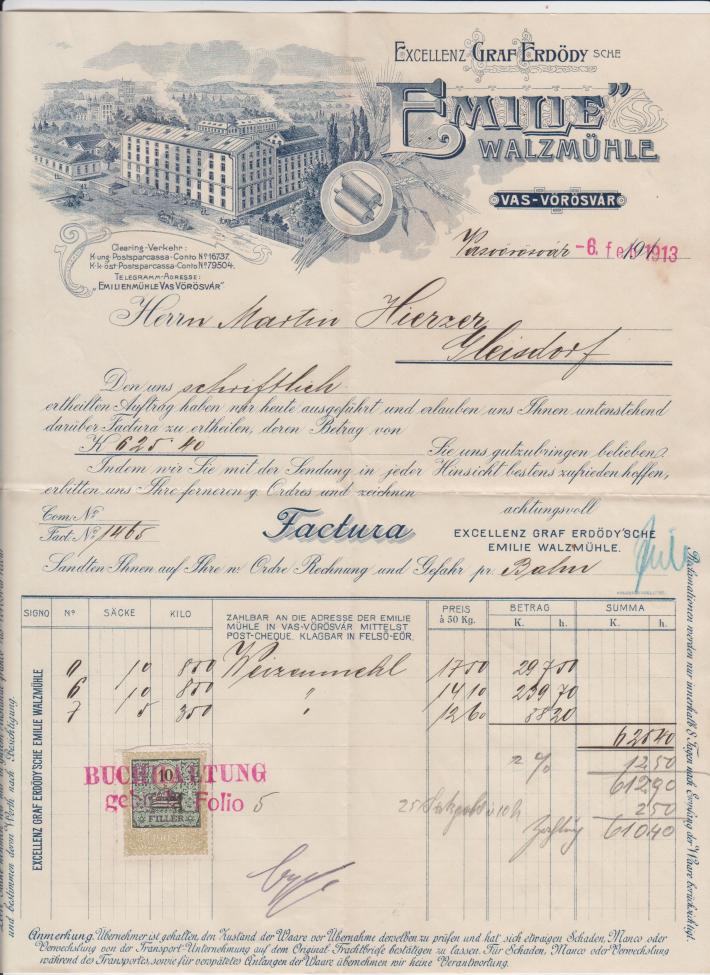 EXCELLENZ GRAF ERDÖDY SCHE
"EMILIE"
WALZMÜHLE
VAS-VÖRÖSVÁR
Clearing-Verkehr:
K.ung.Postsparcassa-Conto Nº 16737.
K.k.öst.Postsparcassa-Conto Nº 79504.
TELEGRAMM-ADRESSE:
"EMILIENMÜHLE VAS VÖRÖSVÁR"
Vasvörösvár -6. feb. 191 1913
Herrn Martin Hierzer
Gleisdorf
Den uns schriftlich
ertheilten Auftrag haben wir heute ausgeführt und erlauben uns Ihnen untenstehend
darüber Factura zu ertheilen, deren Betrag von
K 625 40 Sie uns gutzubringen belieben.
Indem wir Sie mit der Sendung in jeder Hinsicht bestens zufrieden hoffen,
erbitten uns Ihre ferneren g. Ordres und zeichnen
achtungsvoll
Com. Nº
Fact. Nº 1465
Factura
EXCELLENZ GRAF ERDÖDY'SCHE
EMILIE WALZMÜHLE.
Sandten Ihnen auf Ihre w. Ordre Rechnung und Gefahr pr. Bahn
SIGNO Nº SÄCKE KILO
ZAHLBAR AN DIE ADRESSE DER EMILIE
MÜHLE IN VAS-VÖRÖSVÁR MITTELST
POST-CHEQUE. KLAGBAR IN FELSŐ-EÖR.
PREIS
à 50 Kg.
BETRAG
K. h.
SUMMA
K. h.
0 10 800 Weizenmehl 1750 297 50
6 10 800 " 1410 239 70
7 5 350 " 1260 88 20
625 40
2 % 12 50
612 90
25 à 10 h 2 50
610 40
BUCHHALTUNG
Folio 5
10
FILLÉR
EXCELLENZ GRAF ERDÖDY'SCHE EMILIE WALZMÜHLE
und bestimmen deren Werth nach Besichtigung.
Reclamationen werden nur innerhalb 8 Tagen nach Empfang der Waare berücksichtigt.
Anmerkung. Übernehmer ist gehalten, den Zustand der Waare vor Übernahme derselben zu prüfen und hat sich etwaigen Schaden, Manco oder
Verwechslung von der Transport-Unternehmung auf dem Original-Frachtbriefe bestätigen zu lassen. Für Schaden, Manco oder Verwechslung
während des Transportes, sowie für verspätetes Anlangen der Waare übernehmen wir keine Verantwortung.